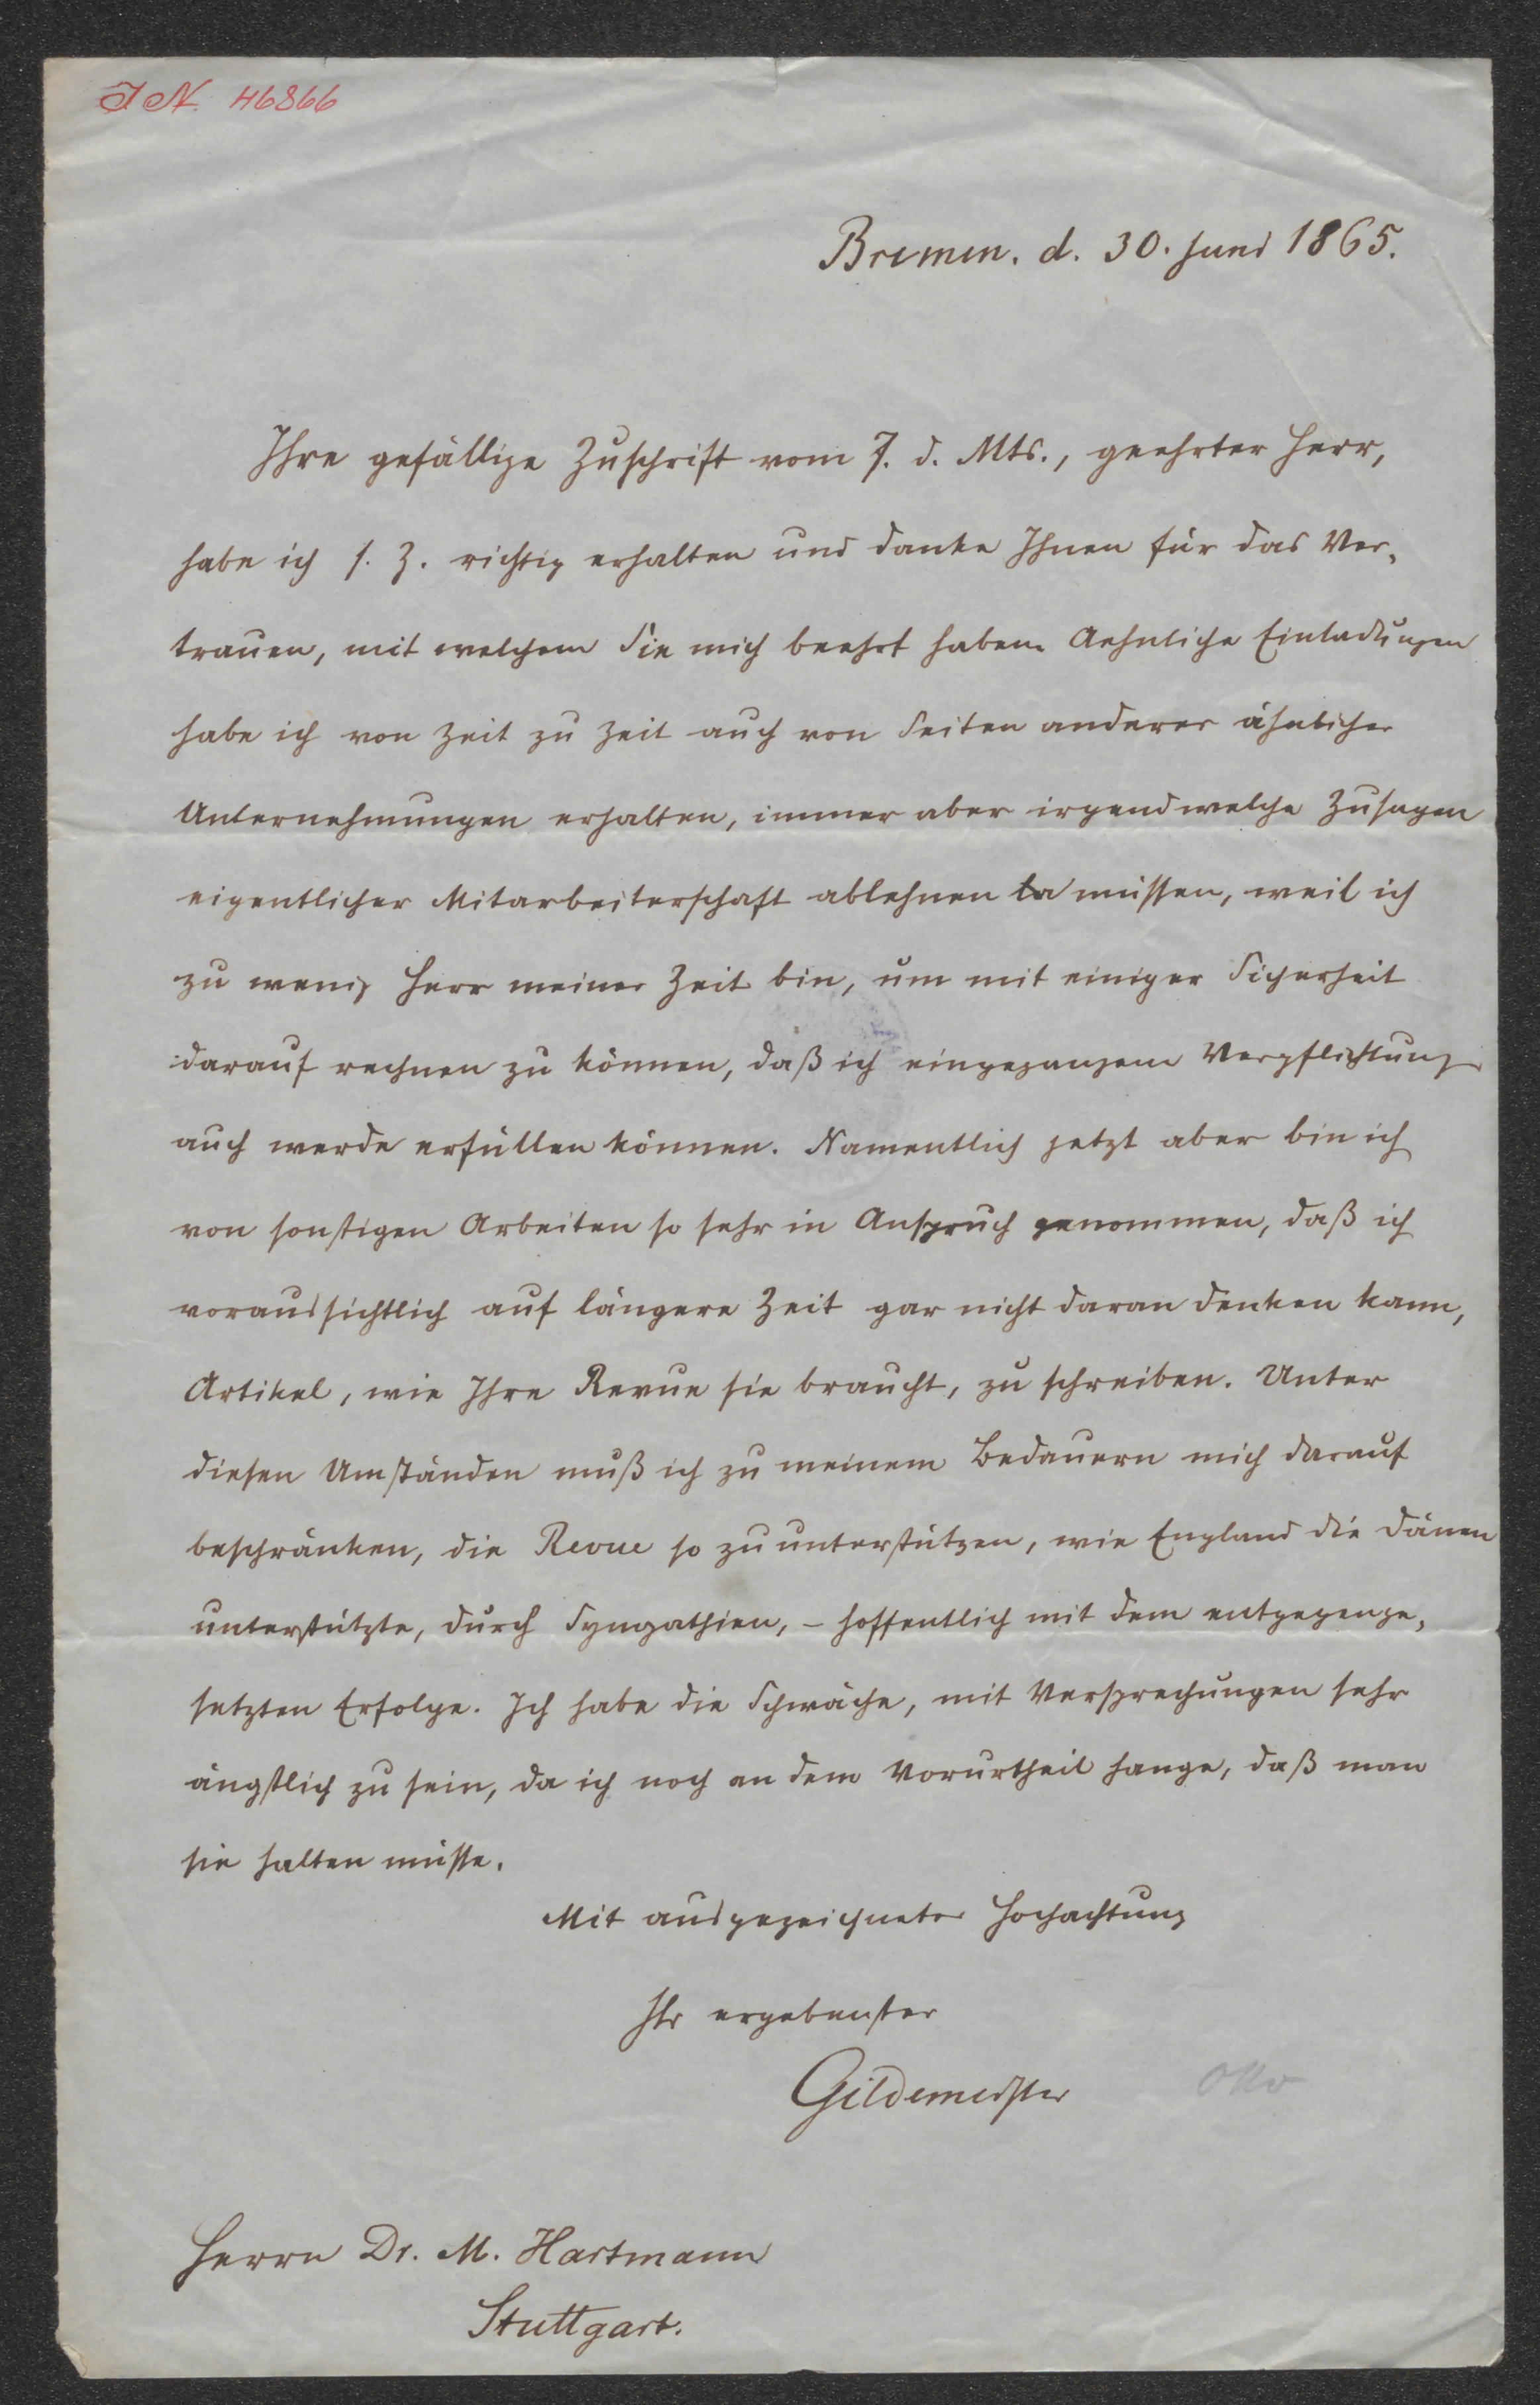 IN 46866
Bremen. d. 30. Juni 1865.
Ihre gefällige Zuschrift vom 7. d. Mts., geehrter Herr,
habe ich s. Z. richtig erhalten und danke Ihnen für das Ver-
trauen, mit welchem Sie mich beehrt haben. Aehnliche Einladungen
habe ich von Zeit zu Zeit auch von Seiten anderer ähnlicher
Unternehmungen erhalten, immer aber irgendwelche Zusagen
eigentlicher Mitarbeiterschaft ablehnen müssen, weil ich
zu wenig Herr meiner Zeit bin, um mit einiger Sicherheit
darauf rechnen zu können, daß ich eingegangene Verpflichtung
auch werde erfüllen können. Namentlich jetzt aber bin ich
von sonstigen Arbeiten so sehr in Anspruch genommen, daß ich
voraussichtlich auf längere Zeit gar nicht daran denken kann,
Artikel, wie Ihre Revue sie braucht, zu schreiben. Unter
diesen Umständen muß ich zu meinem Bedauern mich darauf
beschränken, die Revue so zu unterstützen, wie England die Dänen
unterstützte, durch Sympathien, – hoffentlich mit dem entgegenge-
setzten Erfolge. Ich habe die Schwäche, mit Versprechungen sehr
ängstlich zu sein, da ich noch an dem Vorurtheil hange, daß man
sie halten müsse.
Mit ausgezeichneter Hochachtung
Ihr ergebenster
Gildemeister
Otto
Herrn Dr. M. Hartmann
Stuttgart.